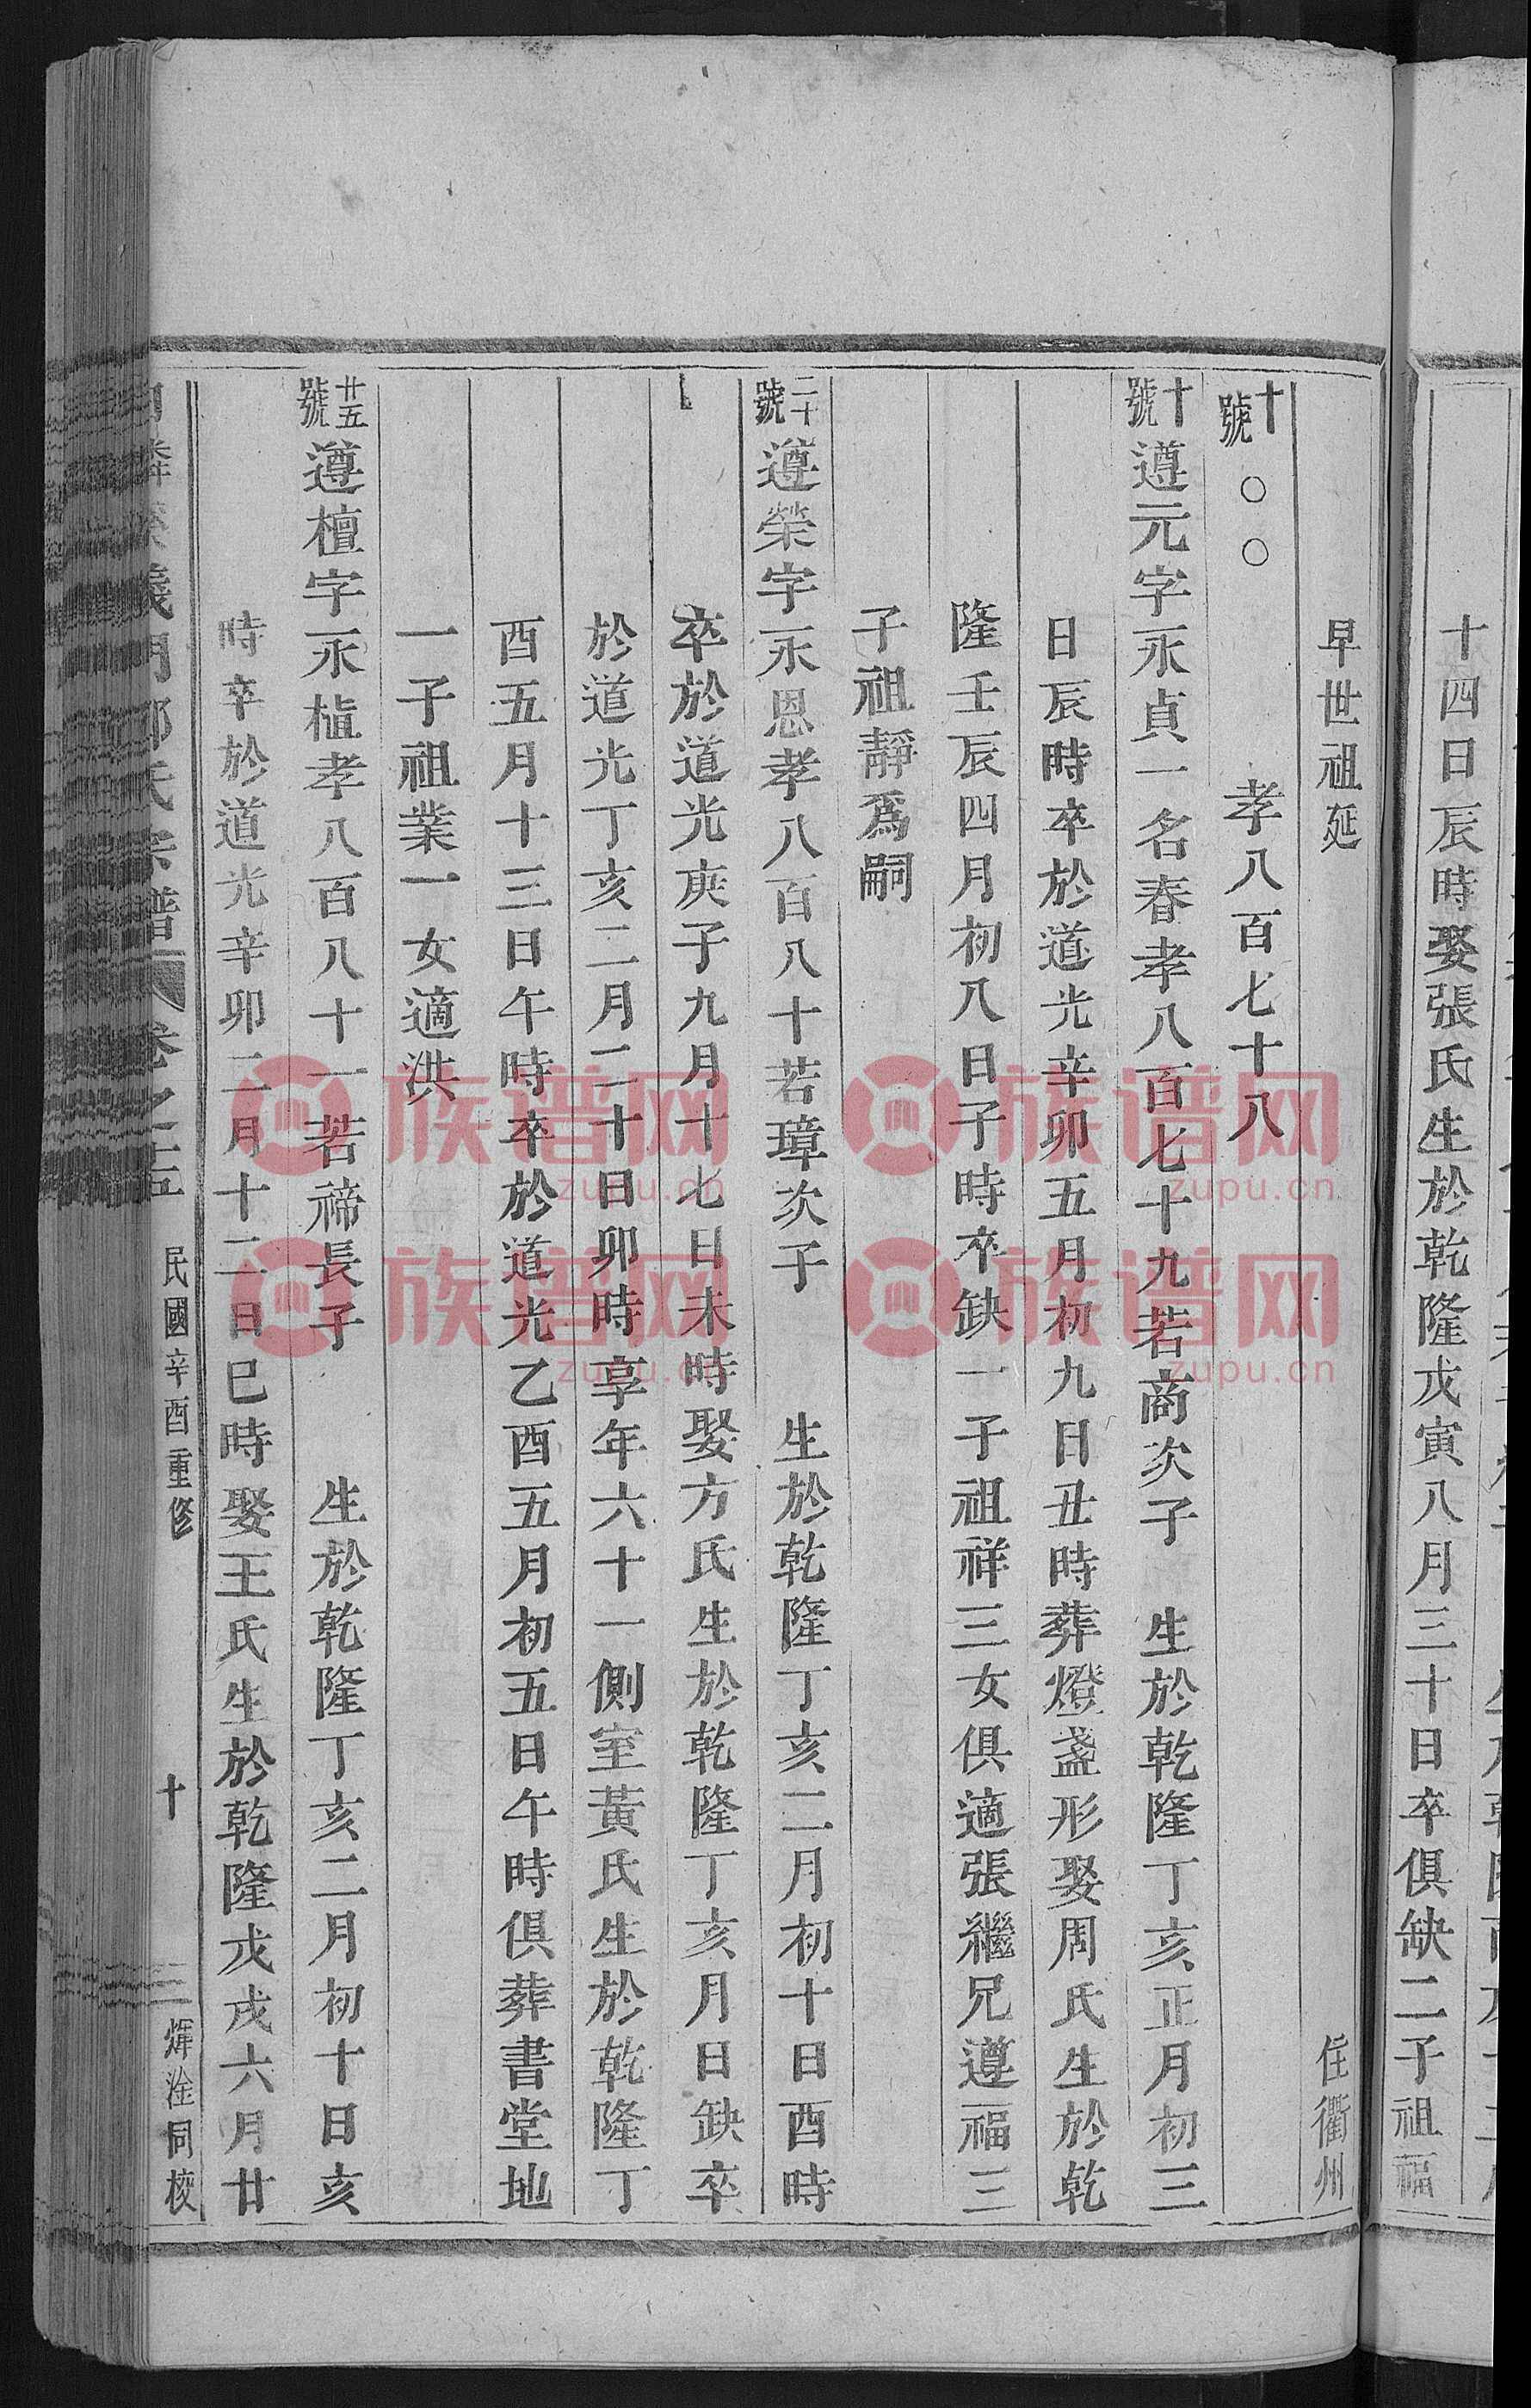 十四日辰時娶張氏生於乾隆戊寅八月三十日卒俱缺二子祖福
早世祖延 住衢州
十號 ○○ 孝八百七十八
十號 遵元字永貞一名春孝八百七十九若商次子 生於乾隆丁亥正月初三
日辰時卒於道光辛卯五月初九日丑時葬燈盞形娶周氏生於乾
隆壬辰四月初八日子時卒缺一子祖祥三女俱適張繼兄遵福三
子祖靜爲嗣
二十號 遵榮字永恩孝八百八十若璋次子 生於乾隆丁亥二月初十日酉時
卒於道光庚子九月十七日未時娶方氏生於乾隆丁亥月日缺卒
於道光丁亥二月二十日卯時享年六十一側室黃氏生於乾隆丁
酉五月十三日午時卒於道光乙酉五月初五日午時俱葬書堂地
一子祖業一女適洪
廿五號 遵檀字永植孝八百八十一若禘長子 生於乾隆丁亥二月初十日亥
時卒於道光辛卯二月十二日巳時娶王氏生於乾隆戊戌六月廿
義門鄭氏宗譜 卷之十五 民國辛酉重修 十 三 煇淦同校
族谱网
zupu.cn
族谱网
zupu.cn
族谱网
zupu.cn
族谱网
zupu.cn